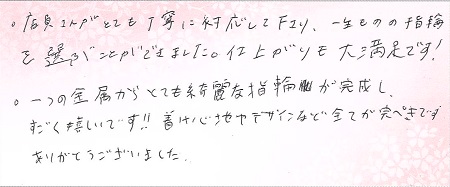 。店員さんがとても丁寧に対応して下さり、一生ものの指輪
を選ぶことができました。仕上がりも大満足です!
。一つの金属からとても綺麗な指輪が完成し、
すごく嬉しいです!! 着け心地やデザインなど全てが完ぺきです
ありがとうございました。